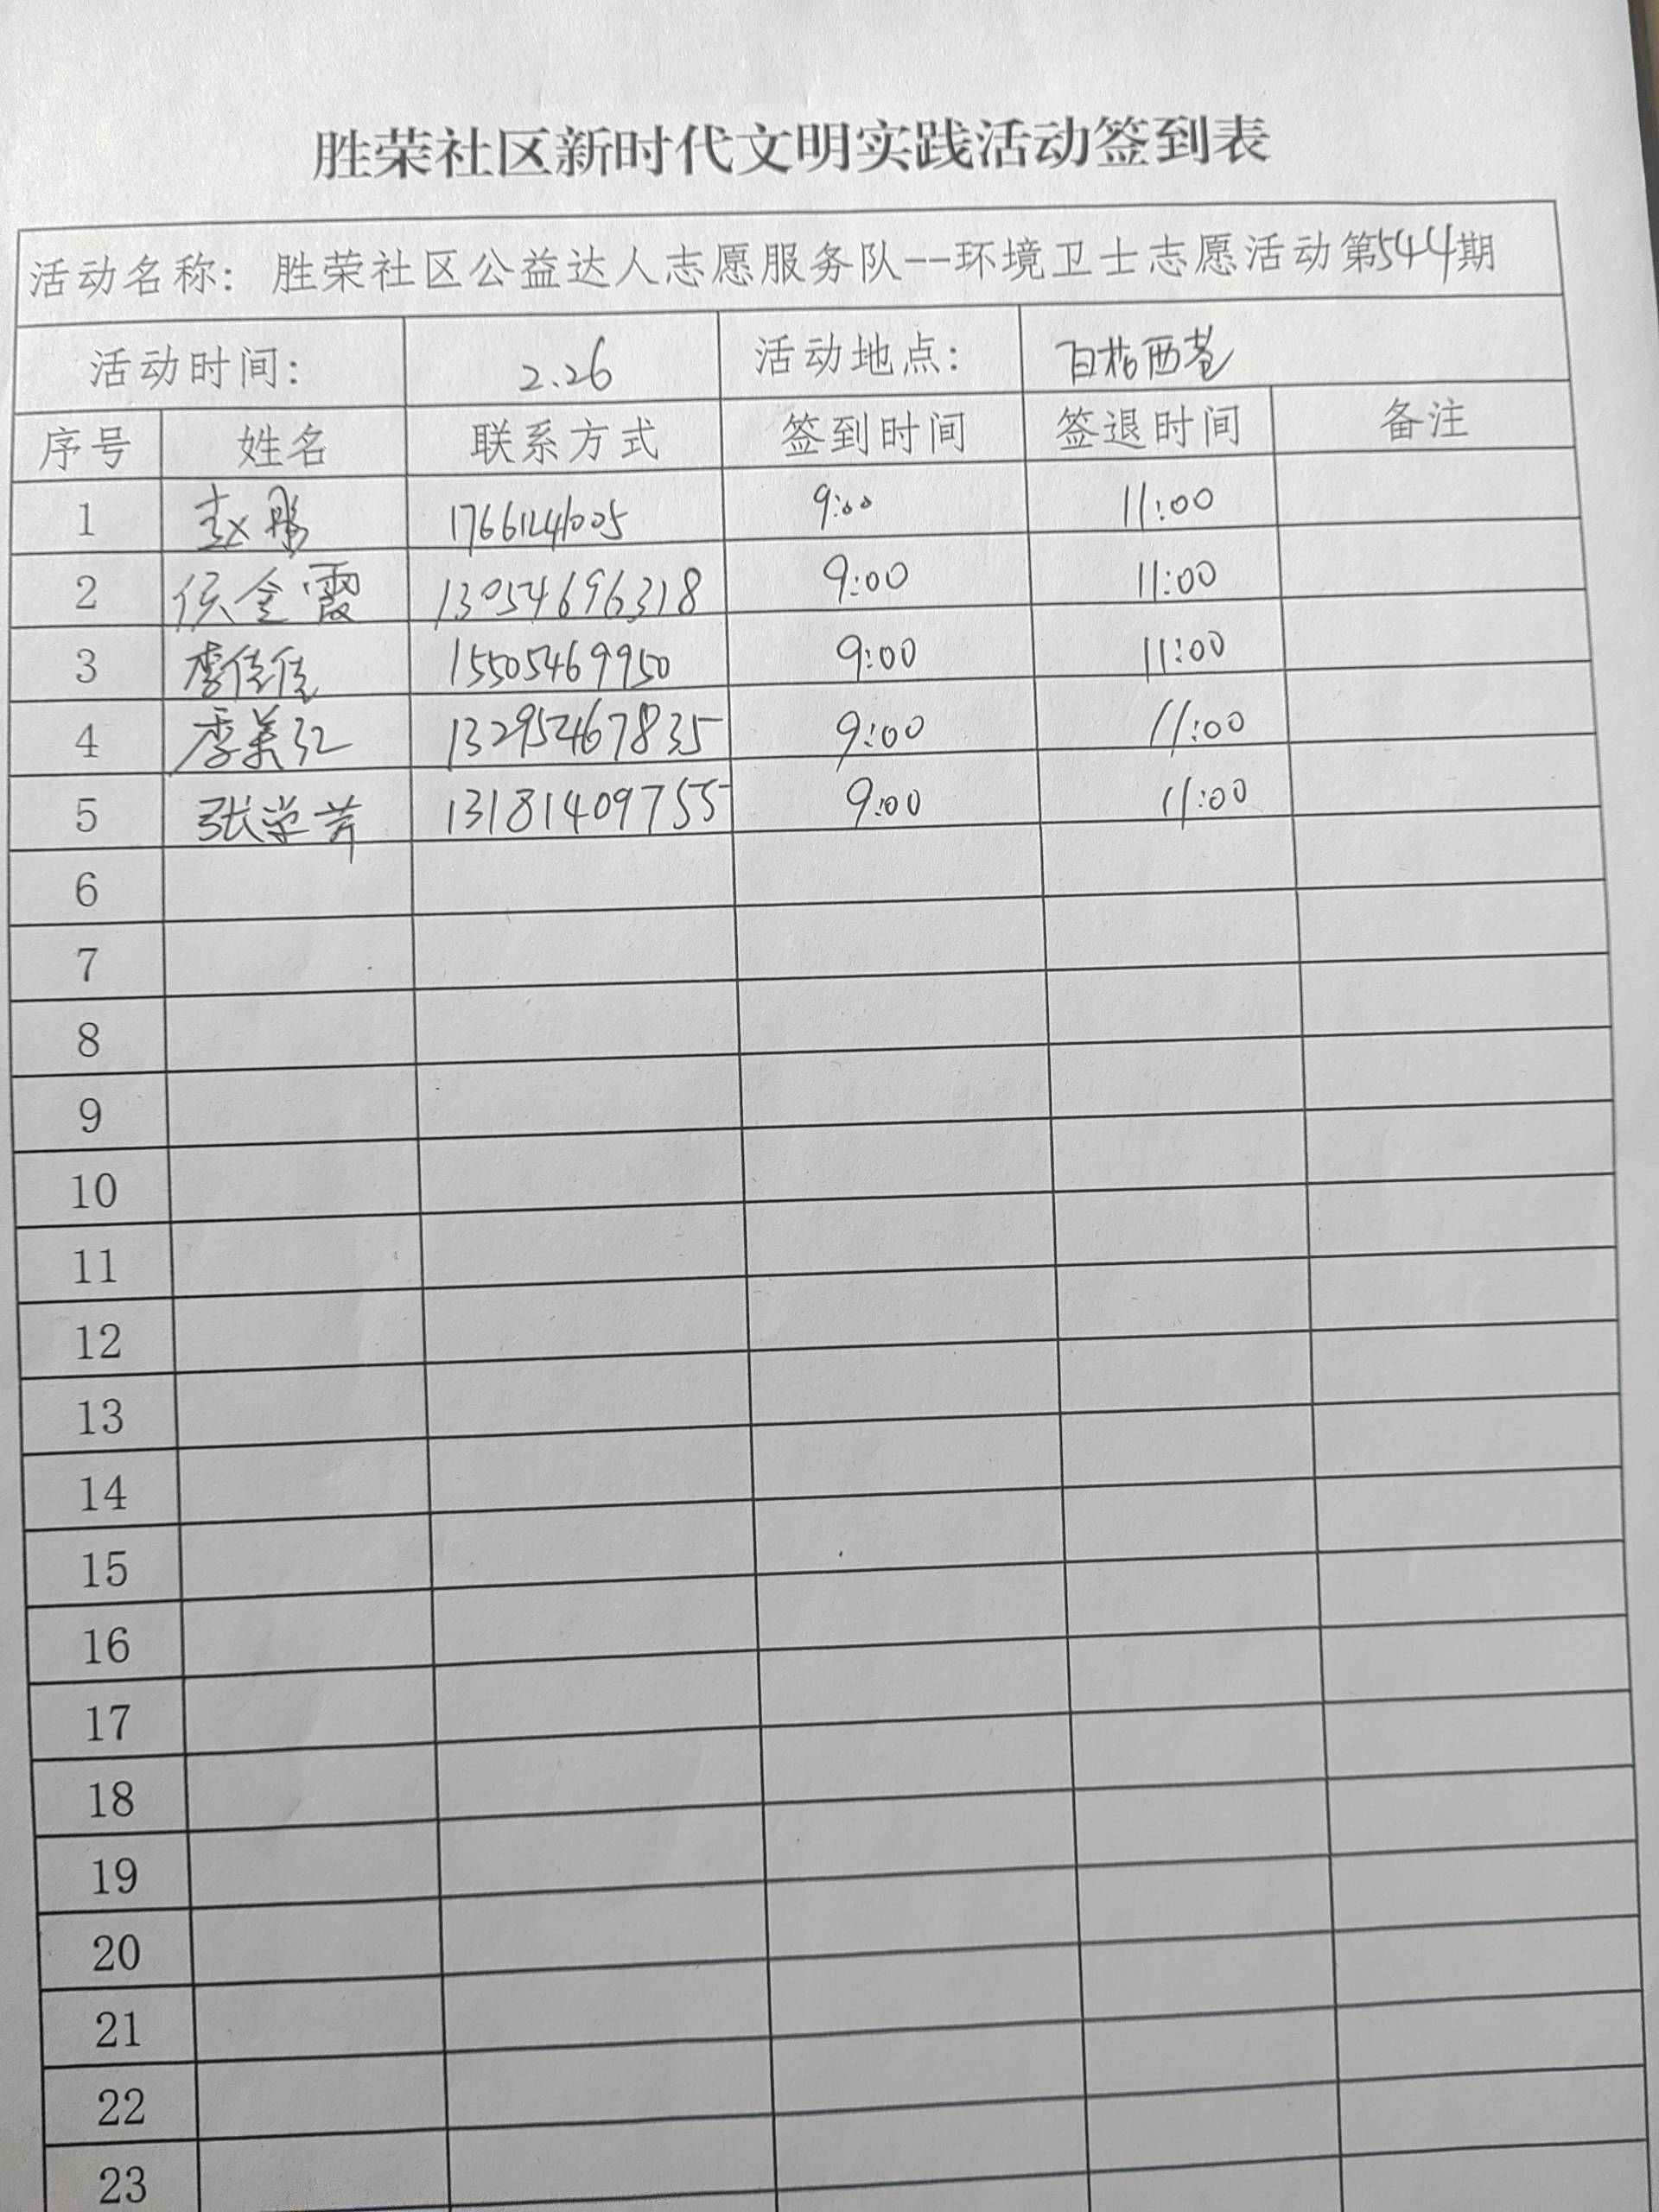 胜荣社区新时代文明实践活动签到表
活动名称：胜荣社区公益达人志愿服务队--环境卫士志愿活动第544期
活动时间： 2.26 活动地点： 西苑
序号 姓名 联系方式 签到时间 签退时间 备注
1 赵鹏 9:00 11:00
2 侯金霞 13054696318 9:00 11:00
3 李佳佳 15505469950 9:00 11:00
4 季美红 13295467835 9:00 11:00
5 张学芳 13181409755 9:00 11:00
6
7
8
9
10
11
12
13
14
15
16
17
18
19
20
21
22
23